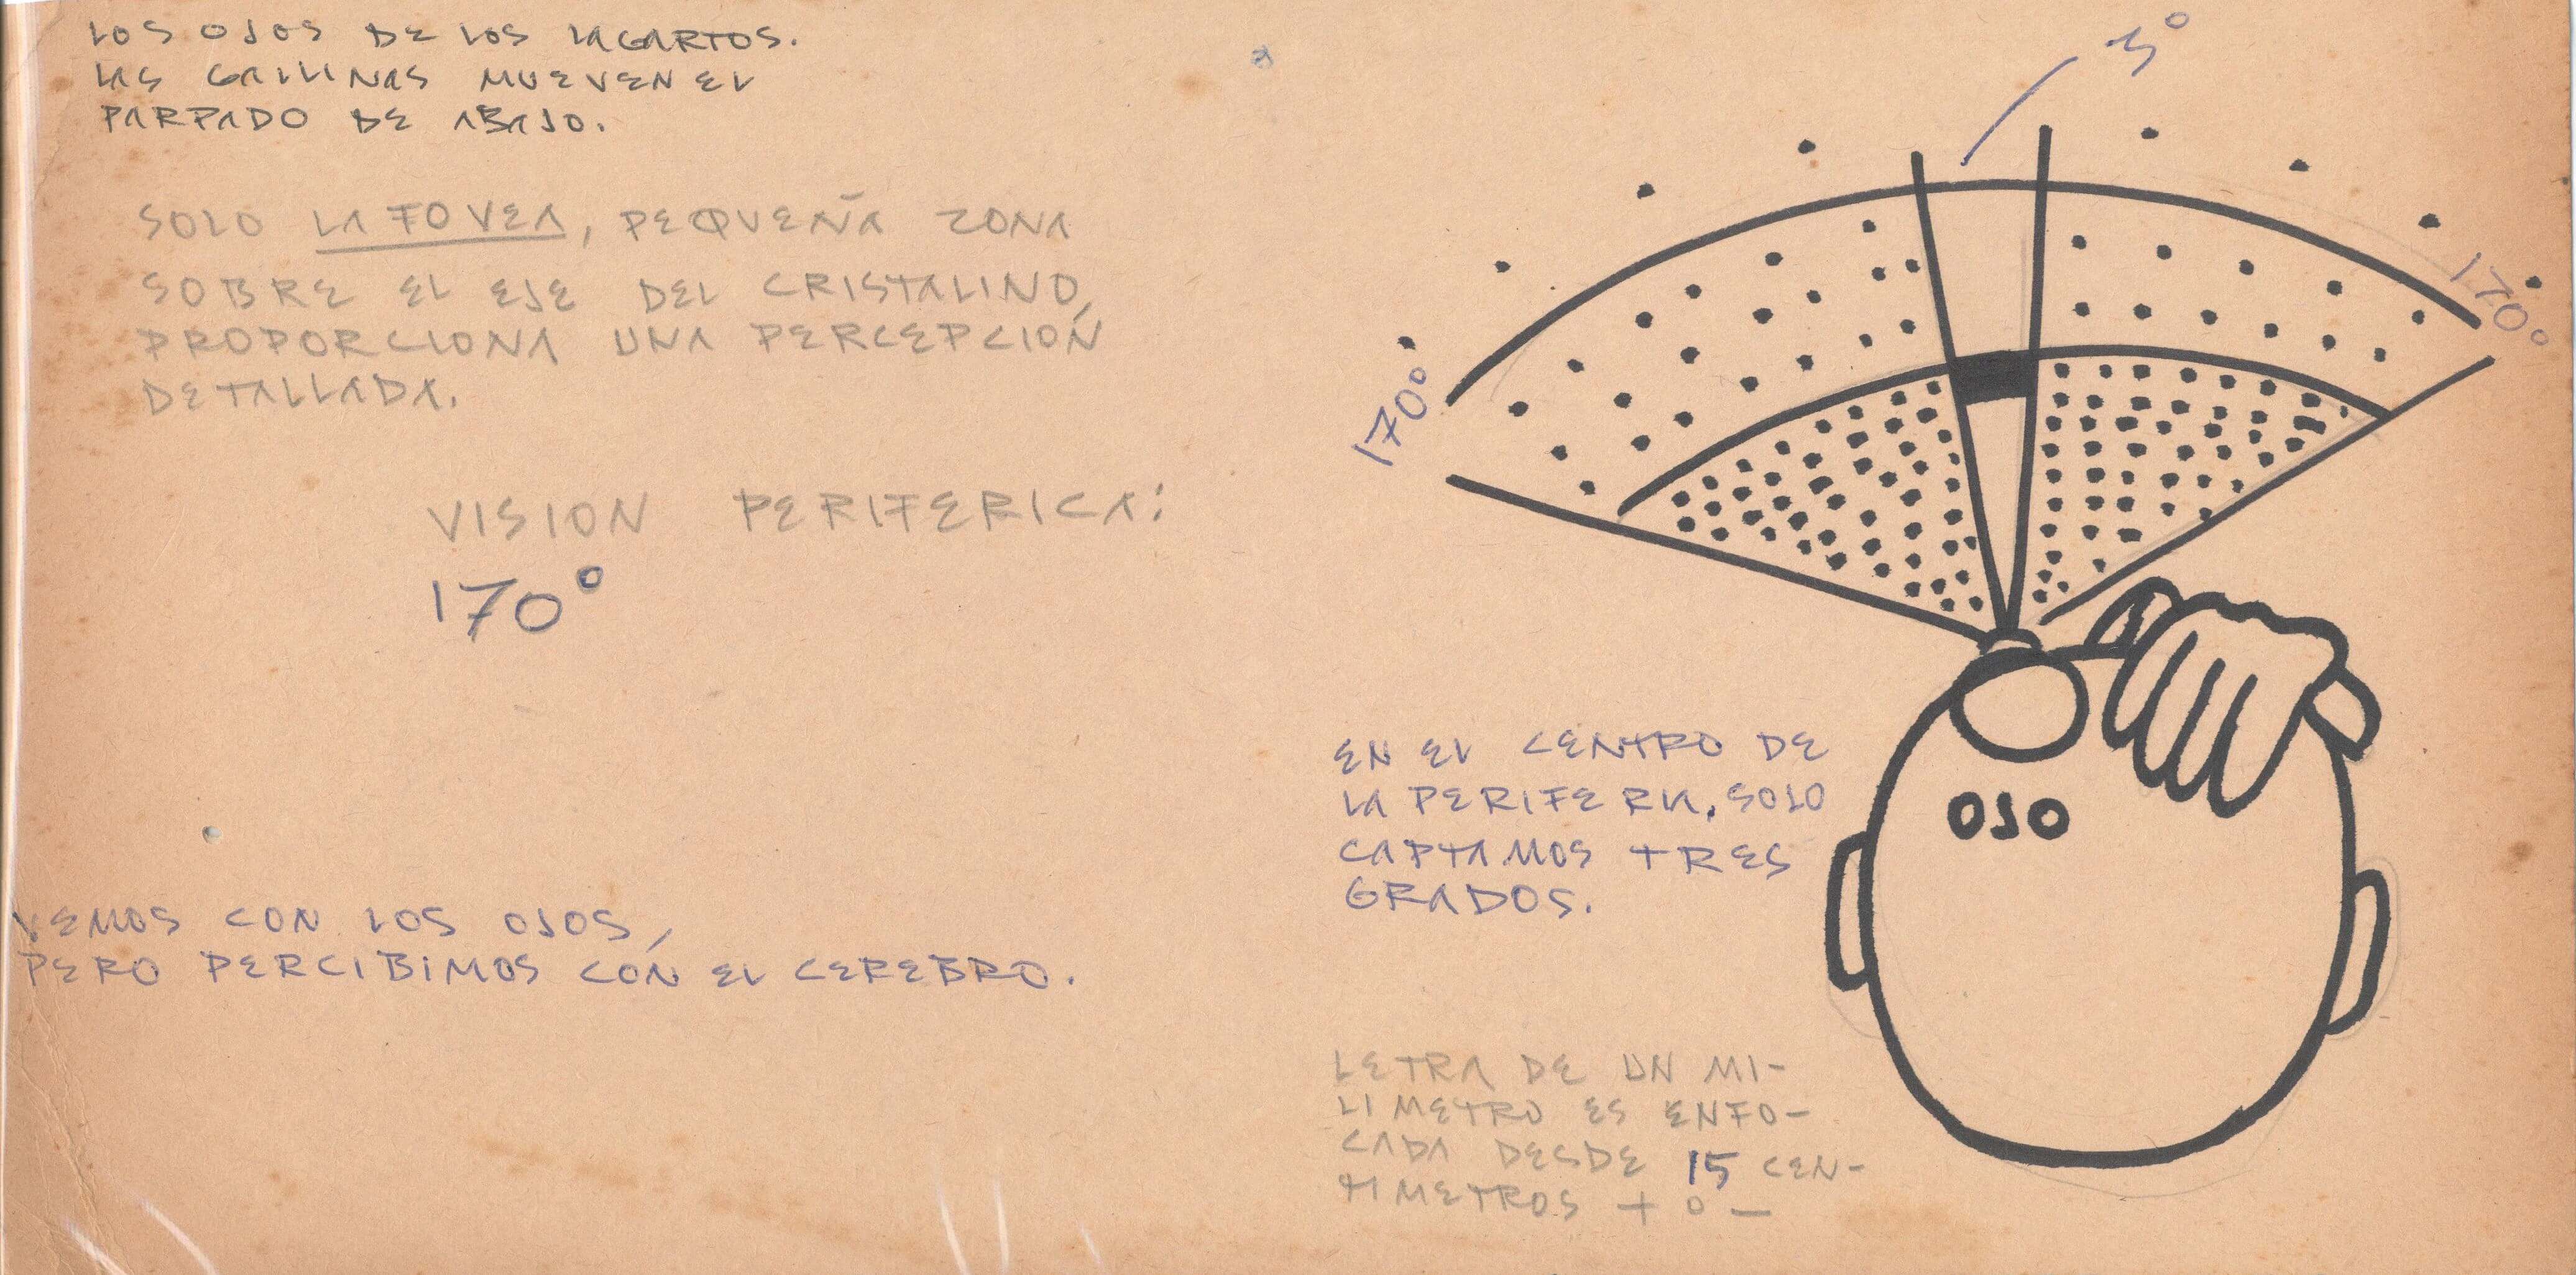 LOS OJOS DE LOS LAGARTOS.
LAS GALLINAS MUEVEN EL
PARPADO DE ABAJO.
SOLO LA FOVEA, PEQUEÑA ZONA
SOBRE EL EJE DEL CRISTALINO,
PROPORCIONA UNA PERCEPCIÓN
DETALLADA.
VISION PERIFERICA:
170°
VEMOS CON LOS OJOS,
PERO PERCIBIMOS CON EL CEREBRO.
3°
170°
170°
OJO
EN EL CENTRO DE
LA PERIFERIA, SOLO
CAPTAMOS TRES
GRADOS.
LETRA DE UN MI-
LIMETRO ES ENFO-
CADA DESDE 15 CEN-
TIMETROS + O —